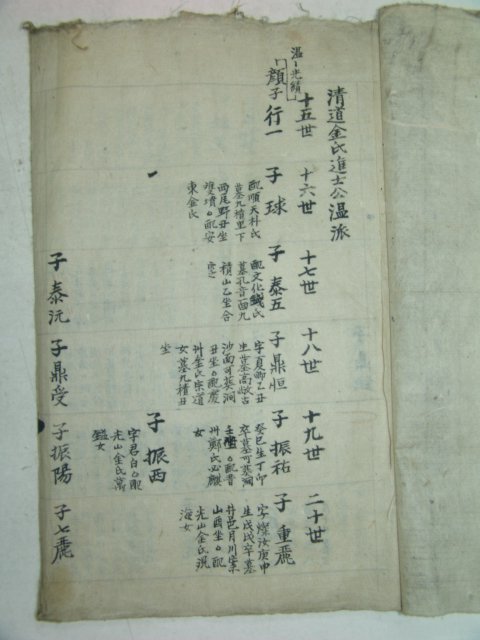 清道金氏進士公温派
十五世
温－光績－
顔子行一
十六世
子球
配順天朴氏
墓九積里下
西尾野丑坐
雙墳○配安
東金氏
十七世
子泰五
配文化
氏
墓孔音面九
積山乙坐合
十八世
子鼎恒
字夏卿乙丑
生墓高敞古
沙面可葵洞
丑坐○配慶
州金氏宗道
女墓九積丑
坐
十九世
子振祐
癸巳生丁卯
卒墓可葵洞
壬坐○配晋
州鄭氏必麒
女
子振西
字君白○配
光山金氏萬
鎰女
二十世
子重麗
字燦汝庚申
生戊戌卒墓
井邑月川案
山酉坐○配
光山金氏況
海女
子泰沅
子鼎受
子振陽
子七麗